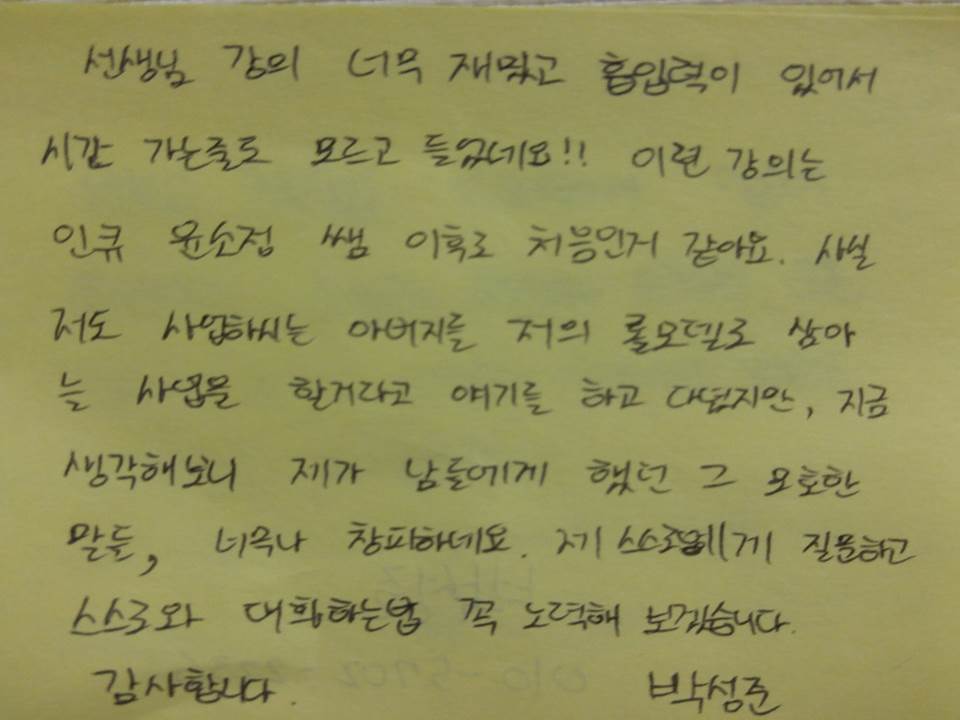 선생님 강의 너무 재밌고 흡입력이 있어서
시간 가는줄도 모르고 들었네요!! 이런 강의는
인큐 윤소정 쌤 이후로 처음인거 같아요. 사실
저도 사업하시는 아버지를 저의 롤모델로 삼아
늘 사업을 할거라고 얘기를 하고 다녔지만, 지금
생각해보니 제가 남들에게 했던 그 모호한
말들, 너무나 창피하네요. 제 스스로에게 질문하고
스스로와 대화하는법 꼭 노력해 보겠습니다.
감사합니다. 박성준